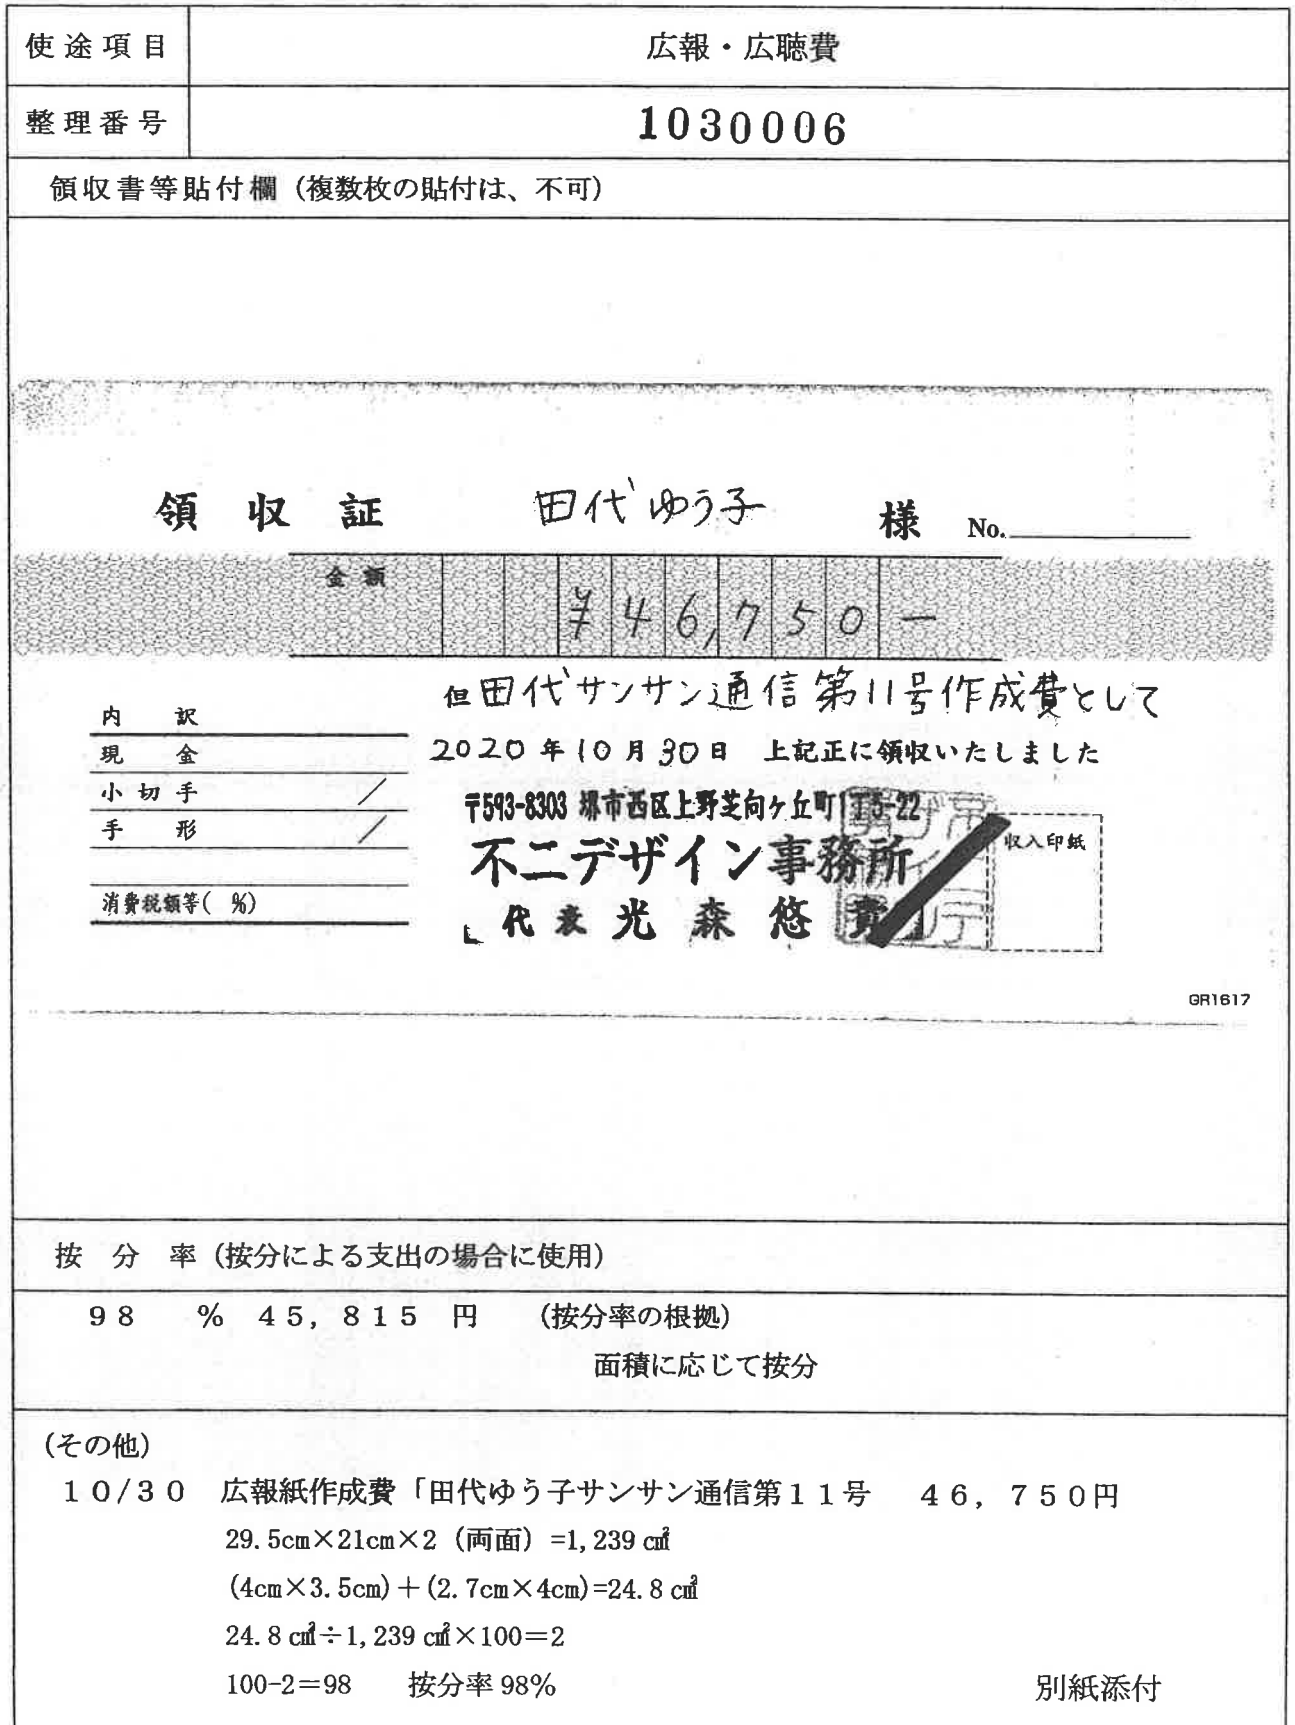 使途項目 広報・広聴費
整理番号 1030006
領収書等貼付欄（複数枚の貼付は、不可）
領収証 田代ゆう子 様 No.
金額 ¥46,750-
但田代サンサン通信第11号作成費として
内訳
現金 2020年10月30日 上記正に領収いたしました
小切手 /
手形 /
〒593-8303 堺市西区上野芝向ヶ丘町1丁5-22
不二デザイン事務所
収入印紙
消費税額等( %)
代表 光森悠
GR1617
按分率（按分による支出の場合に使用）
98 % 45,815 円 （按分率の根拠）
面積に応じて按分
（その他）
10/30 広報紙作成費「田代ゆう子サンサン通信第11号 46,750円
29.5cm×21cm×2（両面）=1,239㎠
(4cm×3.5cm)＋(2.7cm×4cm)=24.8㎠
24.8㎠÷1,239㎠×100＝2
100-2＝98 按分率98%
別紙添付